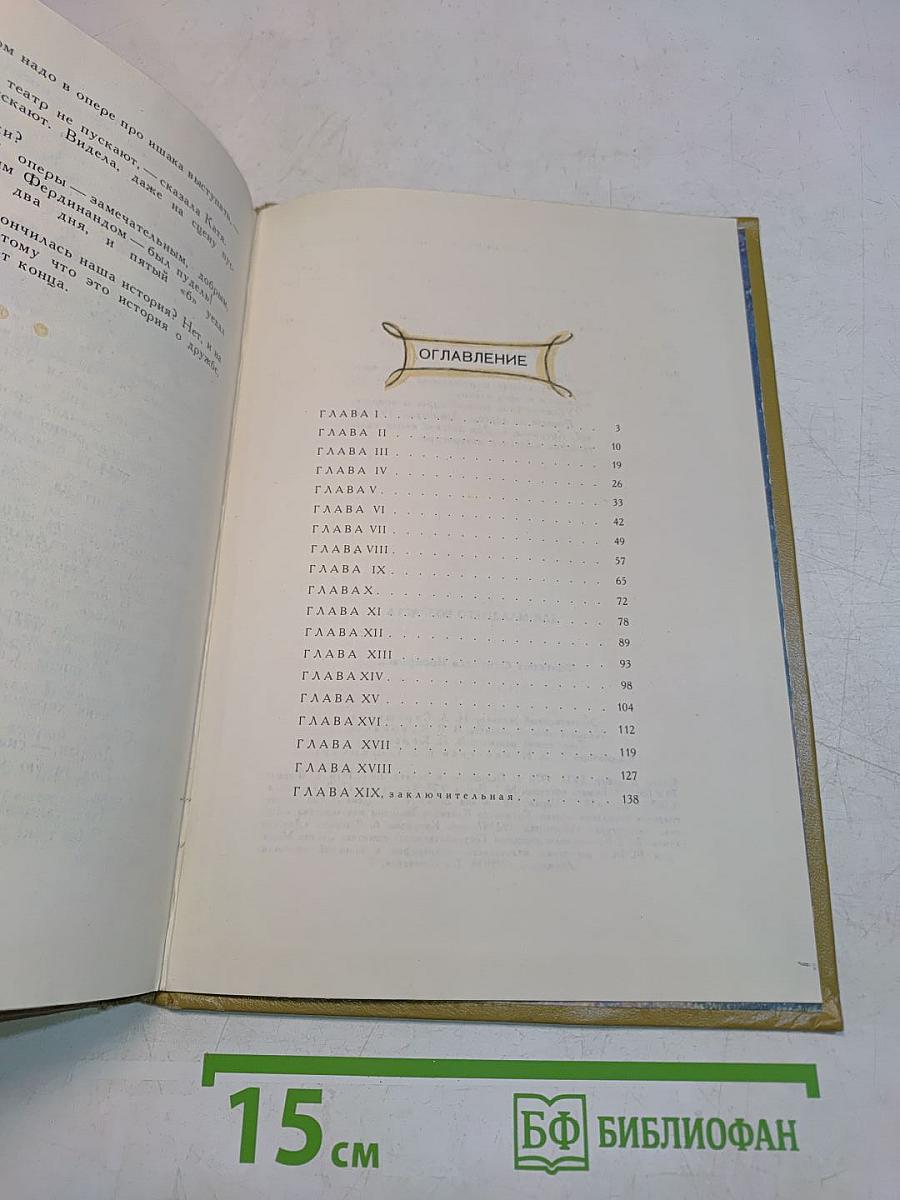 ом надо в опере про ишака выступать.—
театр не пускают,— сказала Ката.
скают. Видела, даже на сцену пус-
и?
оперы — замечательным, добрым
м Фердинандом — был пудель!
два дня, и пятый «б» уехал
ончилась наша история? Нет, и на
тому что это история о дружбе,
т конца.
ОГЛАВЛЕНИЕ
ГЛАВА I . . . . . . . . . . . . . . 3
ГЛАВА II . . . . . . . . . . . . . . 10
ГЛАВА III . . . . . . . . . . . . . . 19
ГЛАВА IV . . . . . . . . . . . . . . 26
ГЛАВА V . . . . . . . . . . . . . . 33
ГЛАВА VI . . . . . . . . . . . . . . 42
ГЛАВА VII . . . . . . . . . . . . . . 49
ГЛАВА VIII . . . . . . . . . . . . . . 57
ГЛАВА IX . . . . . . . . . . . . . . 65
ГЛАВА X . . . . . . . . . . . . . . 72
ГЛАВА XI . . . . . . . . . . . . . . 78
ГЛАВА XII . . . . . . . . . . . . . . 89
ГЛАВА XIII . . . . . . . . . . . . . . 93
ГЛАВА XIV . . . . . . . . . . . . . . 98
ГЛАВА XV . . . . . . . . . . . . . . 104
ГЛАВА XVI . . . . . . . . . . . . . . 112
ГЛАВА XVII . . . . . . . . . . . . . . 119
ГЛАВА XVIII . . . . . . . . . . . . . . 127
ГЛАВА XIX, заключительная . . . . . . . 138
15 см
БФ БИБЛИОФАН